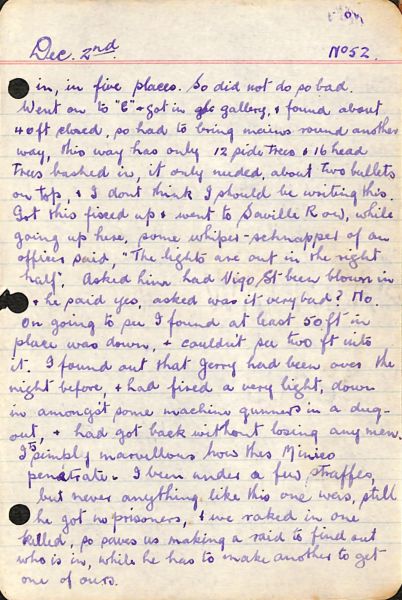 Dec. 2nd. No 52.
in, in five places. So did not do so bad.
Went on to "E" + got in gallery, + found about
40ft closed, so had to bring mains round another
way, this way has only 12 side trees + 16 head
trees bashed in, it only needed, about two bullets
on top, + I dont think I should be writing this.
Got this fixed up + went to Saville Row, while
going up here, some whiper-schnapper of an
officer said, "The lights are out in the right
half". Asked him had Vigo St been blown in
+ he said yes, asked was it very bad? No.
On going to see I found at least 50ft in
place was down, + couldn't see two ft into
it. I found out that Jerry had been over the
night before, + had fired a very light, down
in amongst some machine gunners in a dug-
out, + had got back without losing any men.
Its simply marvellous how thes Minies
penetrate. I been under a few straffes,
but never anything like this one was, still
he got no prisoners, + we raked in one
killed, so saves us making a raid to find out
who is in, while he has to make another to get
one of ours.